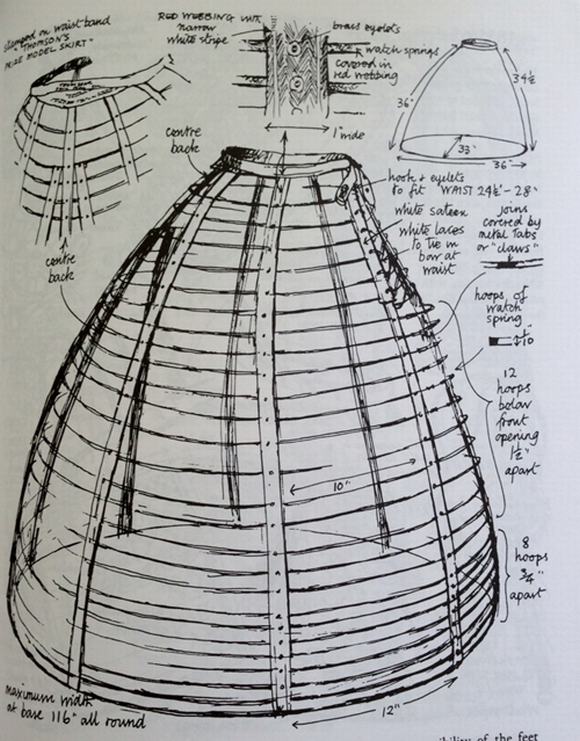 stamped on waist band
"THOMSON'S
PRIZE MODEL SKIRT"
RED WEBBING WITH
narrow
white stripe
brass eyelets
watch springs
covered in
red webbing
1" wide
36"
34½
33"
36"
centre
back
hook & eyelets
to fit WAIST 24½"-28"
white sateen
white laces
to tie in
bow at
waist
joins
covered by
metal tabs
or "claws"
centre
back
hoops of
watch
spring
12
hoops
below
front
opening
1½"
apart
10"
8
hoops
¾"
apart
maximum width
at base 116" all round
12"
of the feet